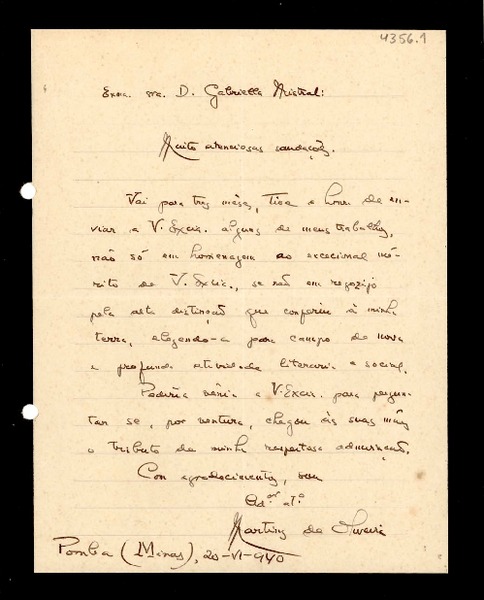 4356.1
Exma. sra. D. Gabriella Mistral:
Muito atenciosas saudações.
Vai para tres mêses, tive a honra de en-
viar a V. Excia. alguns de meus trabalhos,
não só em homenagem ao excecional mé-
rito de V. Excia., se não em regozijo
pela alta distinção que conferiu à minha
terra, elegendo-a para campo de nova
e profunda atividade literaria e social.
Pediria vênia a V. Excia. para pergun-
tar se, por ventura, chegou às suas mãos
o tributo da minha respeitosa admiração.
Com agradecimentos, sou
Ad.or at.o
Martins de Oliveira
Pomba (Minas), 20-VI-940